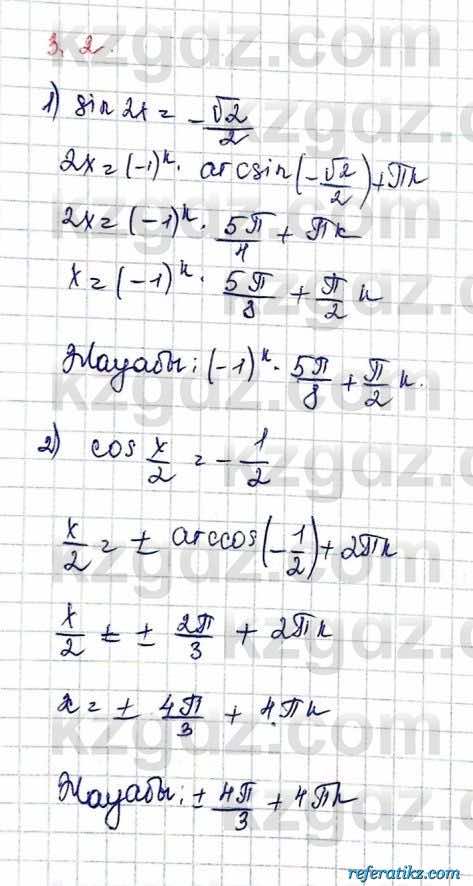 3. 2.
1) sin 2x = -√2/2
2x = (-1)ᵏ · arcsin(-√2/2) + πk
2x = (-1)ᵏ · 5π/4 + πk
x = (-1)ᵏ · 5π/8 + π/2 k
Жауабы: (-1)ᵏ · 5π/8 + π/2 k.
2) cos x/2 = -1/2
x/2 = ± arccos(-1/2) + 2πk
x/2 = ± 2π/3 + 2πk
x = ± 4π/3 + 4πk
Жауабы: ± 4π/3 + 4πk
kzgdz.com
referatikz.com